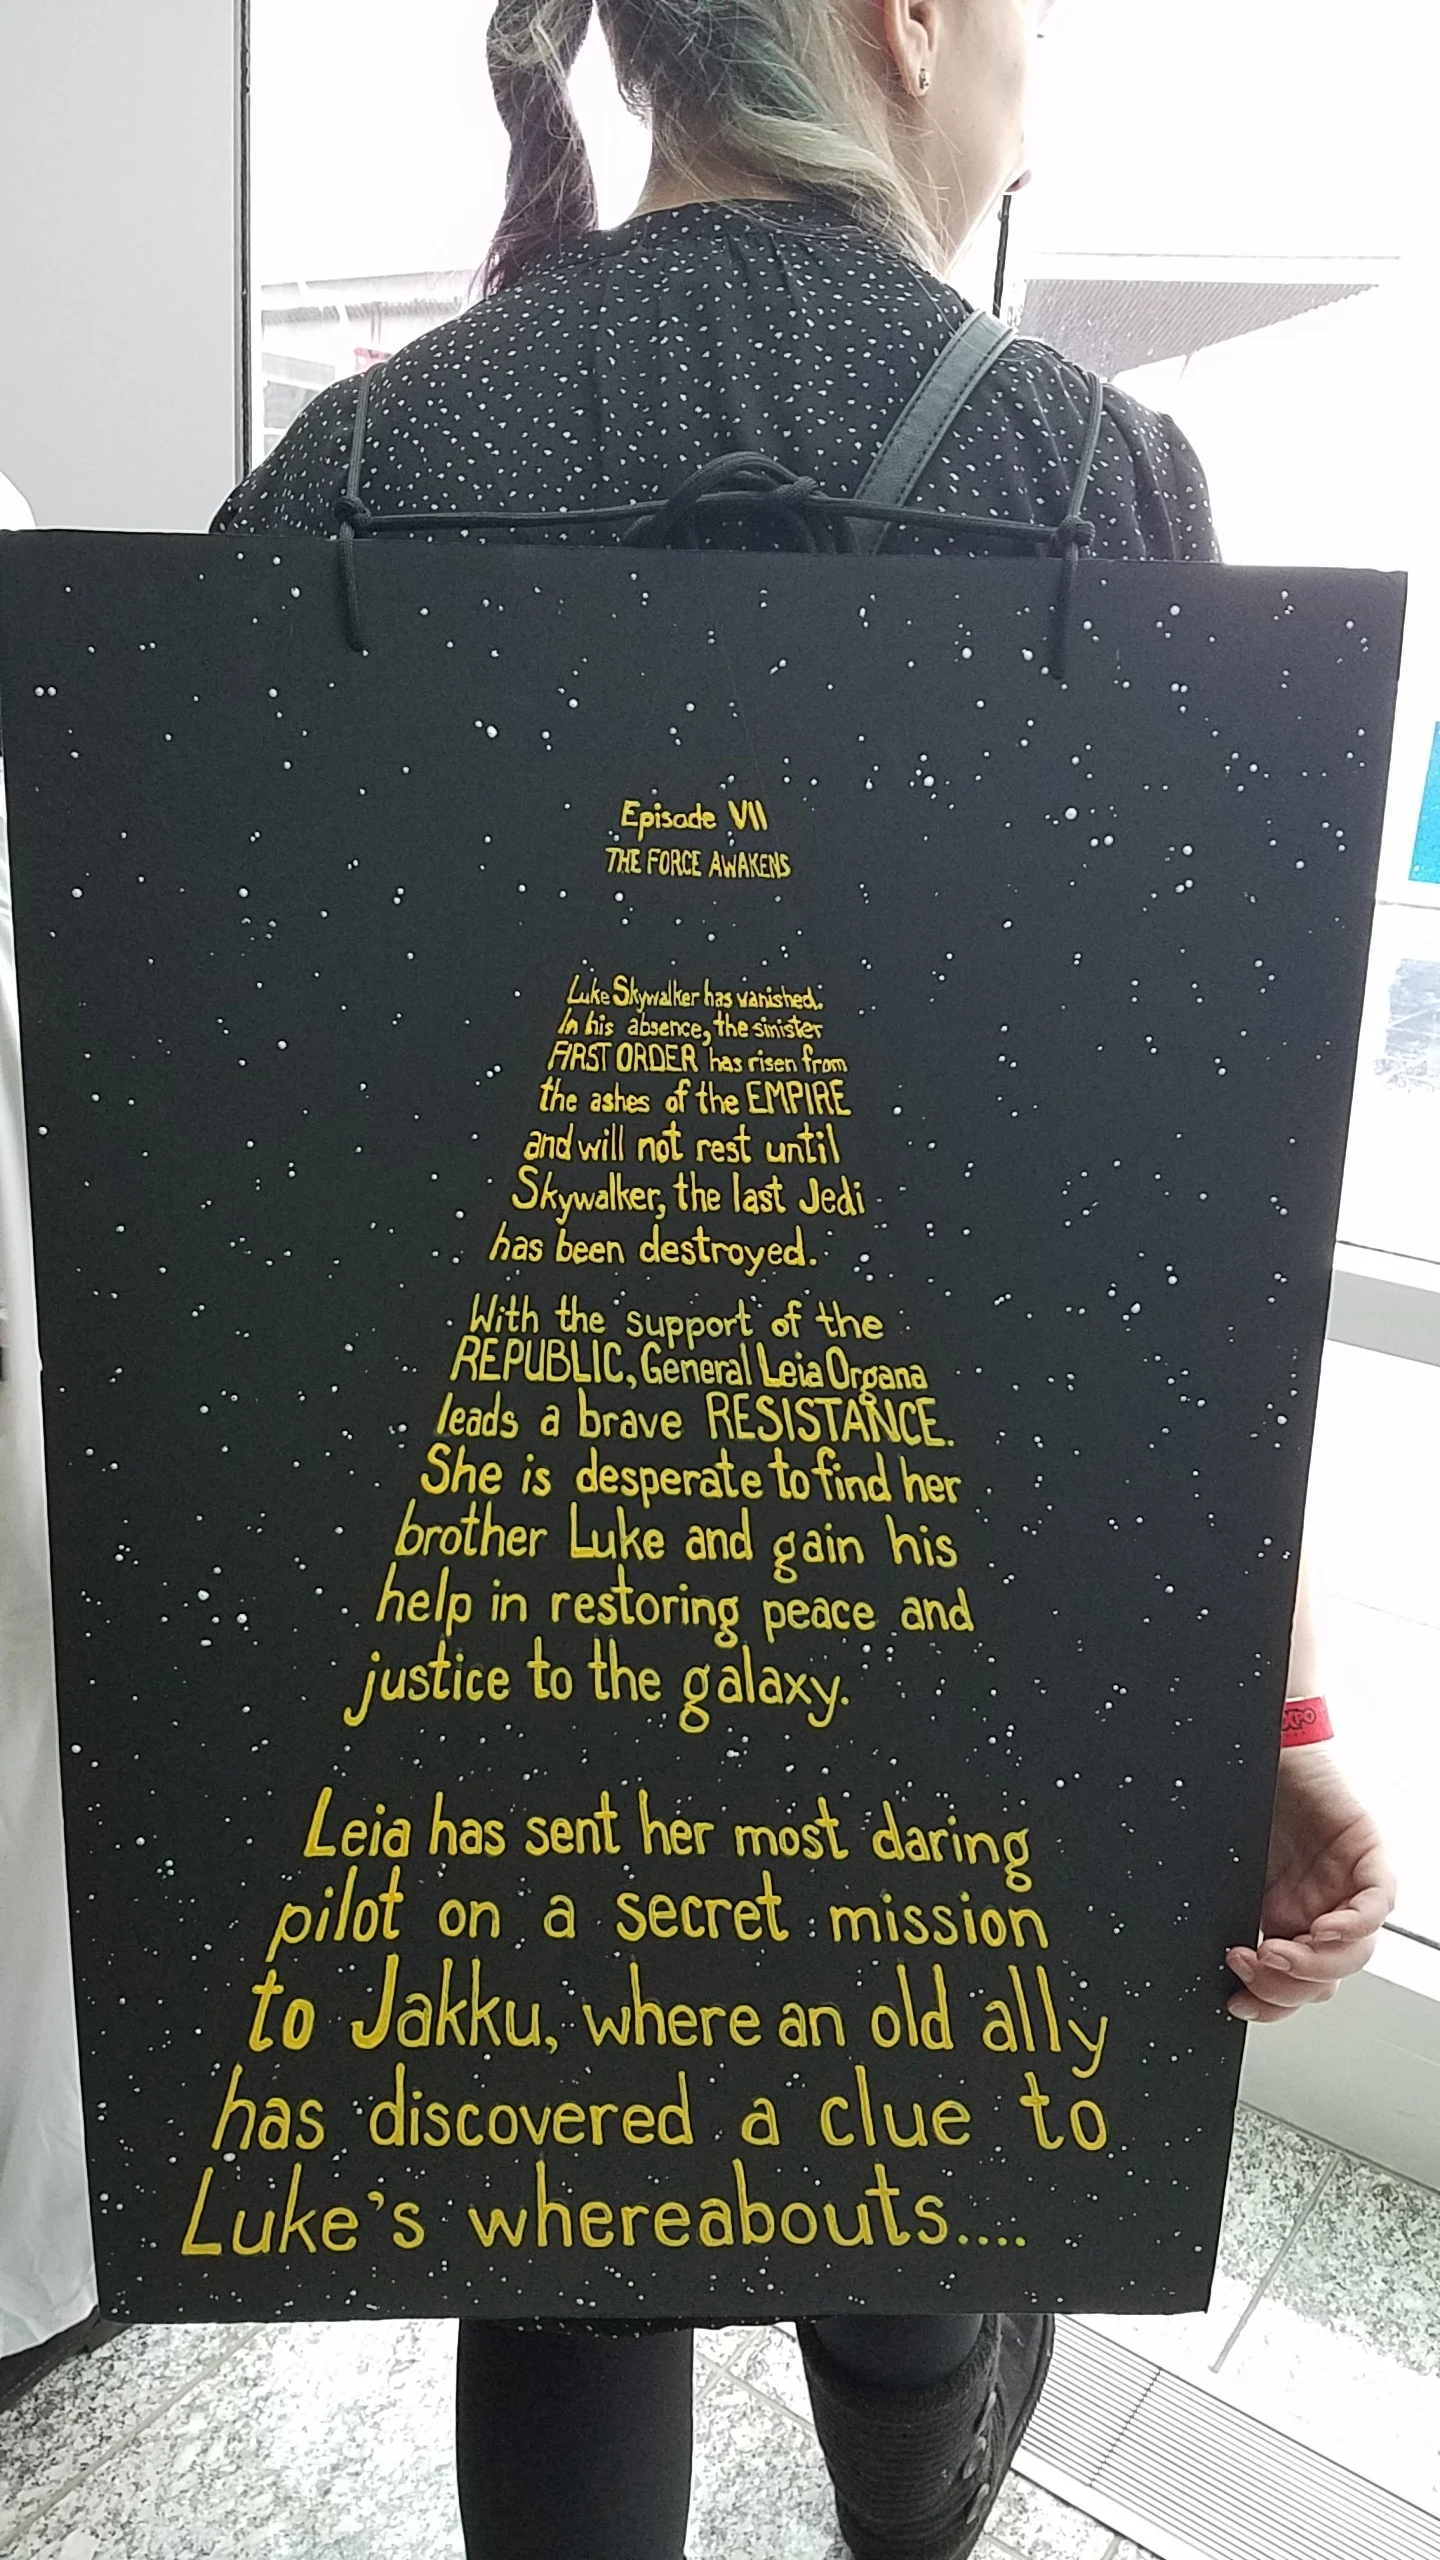 Episode VII
THE FORCE AWAKENS
Luke Skywalker has vanished.
In his absence, the sinister
FIRST ORDER has risen from
the ashes of the EMPIRE
and will not rest until
Skywalker, the last Jedi
has been destroyed.
With the support of the
REPUBLIC, General Leia Organa
leads a brave RESISTANCE.
She is desperate to find her
brother Luke and gain his
help in restoring peace and
justice to the galaxy.
Leia has sent her most daring
pilot on a secret mission
to Jakku, where an old ally
has discovered a clue to
Luke's whereabouts....